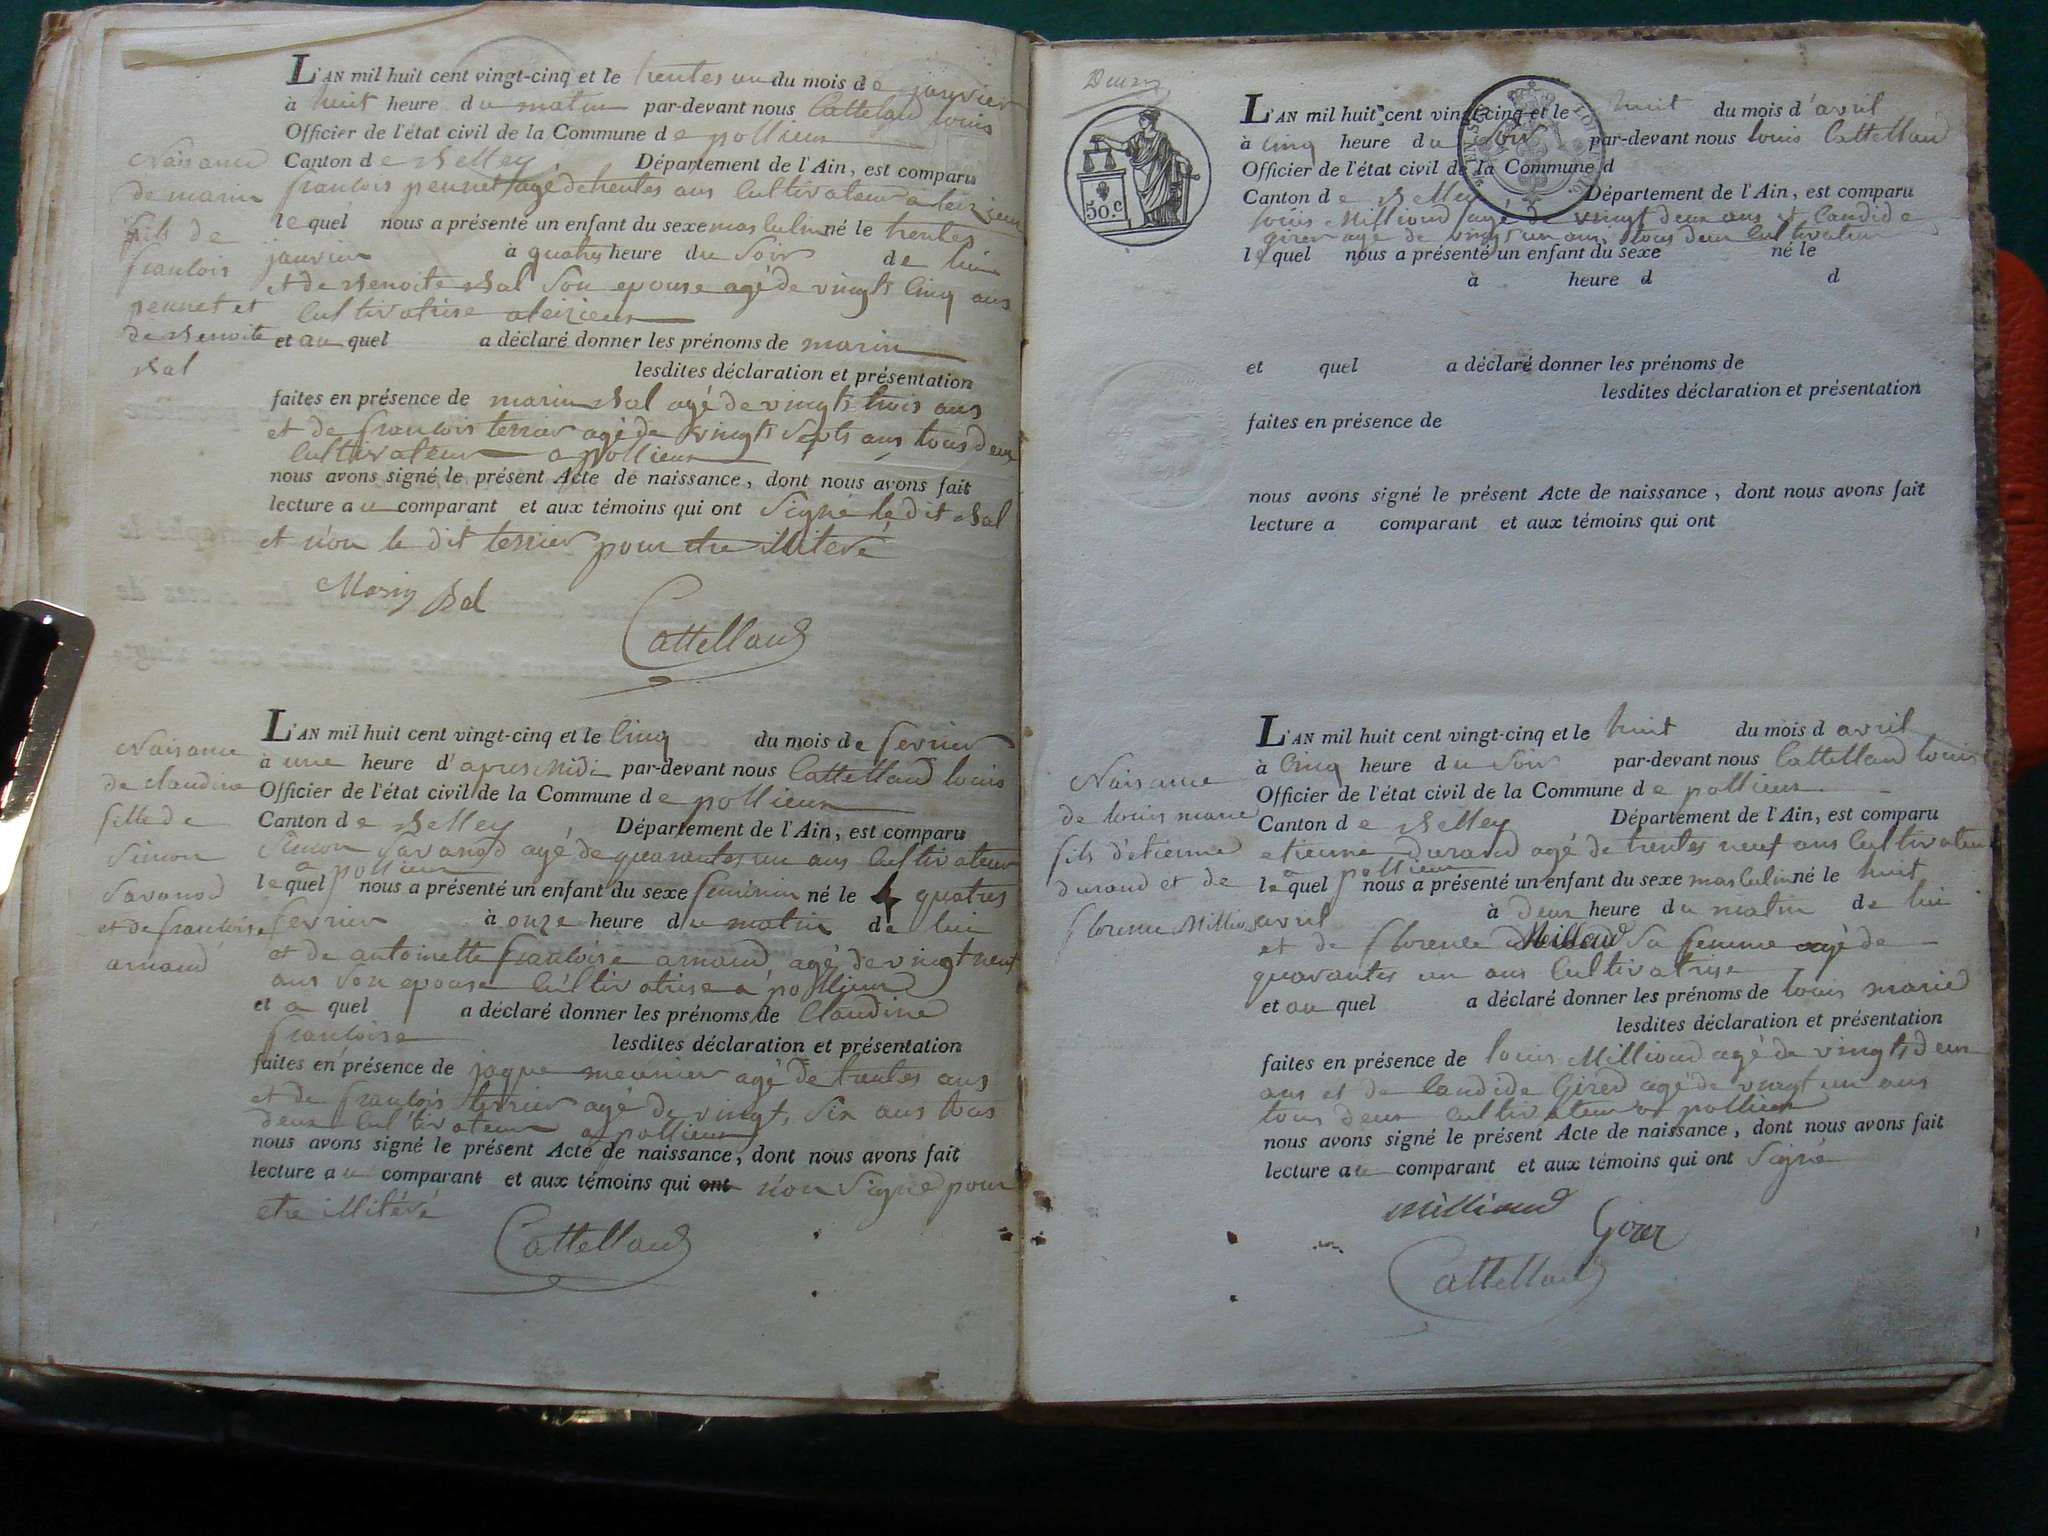 L'AN mil huit cent vingt-cinq et le trentes un du mois de janvier
à huit heure du matin par-devant nous Cattelland louis
Officier de l'état civil de la Commune de pollieux
Canton de Belley Département de l'Ain, est comparu
francois pennet agé de trentes ans Cultivateur a leizieux
le quel nous a présenté un enfant du sexe masculin né le trentes
janvier à quatres heure du Soir de lui
et de Benoite Bal Son epouse agé de vingts Cinq ans
Cultivatrise a leizieux
et au quel a déclaré donner les prénoms de marin
lesdites déclaration et présentation
faites en présence de marin Bal agé de vingts trois ans
et de francois terrier agé de vingts Septs ans tous deux
Cultivateur a pollieux
nous avons signé le présent Acte de naissance, dont nous avons fait
lecture au comparant et aux témoins qui ont Signé le dit Bal
et n'on le dit terrier pour etre illiteré
Marin Bal
Cattelland
Naisance
de marin
fils de
francois
pennet et
de Benoite
Bal
L'AN mil huit cent vingt-cinq et le Cinq du mois de fevrier
à une heure d'apres Midi par-devant nous Cattelland louis
Officier de l'état civil de la Commune de pollieux
Canton de Belley Département de l'Ain, est comparu
Simon Savanod agé de quarantes un ans Cultivateur
a pollieux
le quel nous a présenté un enfant du sexe feminin né le quatres
fevrier à onze heure du matin de lui
et de antoinette francoise arnaud agé de vingt neuf
ans Son epouse Cultivatrise a pollieux
et a quel a déclaré donner les prénoms de Claudine
francoise lesdites déclaration et présentation
faites en présence de jaque meunier agé de trentes ans
et de francois terrier agé de vingt Six ans tous
deux Cultivateur a pollieux
nous avons signé le présent Acte de naissance, dont nous avons fait
lecture au comparant et aux témoins qui ont n'on Signé pour
etre illitéré
Cattelland
Naisance
de claudine
fille de
Simon
Savanod
et de francoise
arnaud
50.c
L'AN mil huit cent vingt-cinq et le huit du mois d'avril
à Cinq heure du Soir par-devant nous louis Cattelland
Officier de l'état civil de la Commune d
Canton de Belley Département de l'Ain, est comparu
louis Millioud agé de vingt deux ans et Candide
Girer agé de vingt un ans tous deux Cultivateur
le quel nous a présenté un enfant du sexe né le
à heure d d
et quel a déclaré donner les prénoms de
lesdites déclaration et présentation
faites en présence de
nous avons signé le présent Acte de naissance, dont nous avons fait
lecture a comparant et aux témoins qui ont
L'AN mil huit cent vingt-cinq et le huit du mois d avril
à Cinq heure du Soir par-devant nous Cattelland louis
Officier de l'état civil de la Commune de pollieux
Canton de Belley Département de l'Ain, est comparu
etienne durand agé de trentes neuf ans Cultivateur
a pollieux
le quel nous a présenté un enfant du sexe masculin né le huit
avril à deux heure du matin de lui
et de florence Millioud Sa femme agé de
quarantes un ans Cultivatrise
et au quel a déclaré donner les prénoms de louis marie
lesdites déclaration et présentation
faites en présence de louis Millioud agé de vingts deux
ans et de Candide Girer agé de vingt un ans
tous deux Cultivateur a pollieux
nous avons signé le présent Acte de naissance, dont nous avons fait
lecture au comparant et aux témoins qui ont Signé
Millioud
Girer
Cattelland
Naisance
de louis marie
fils d'etienne
durand et de
florence Milliou